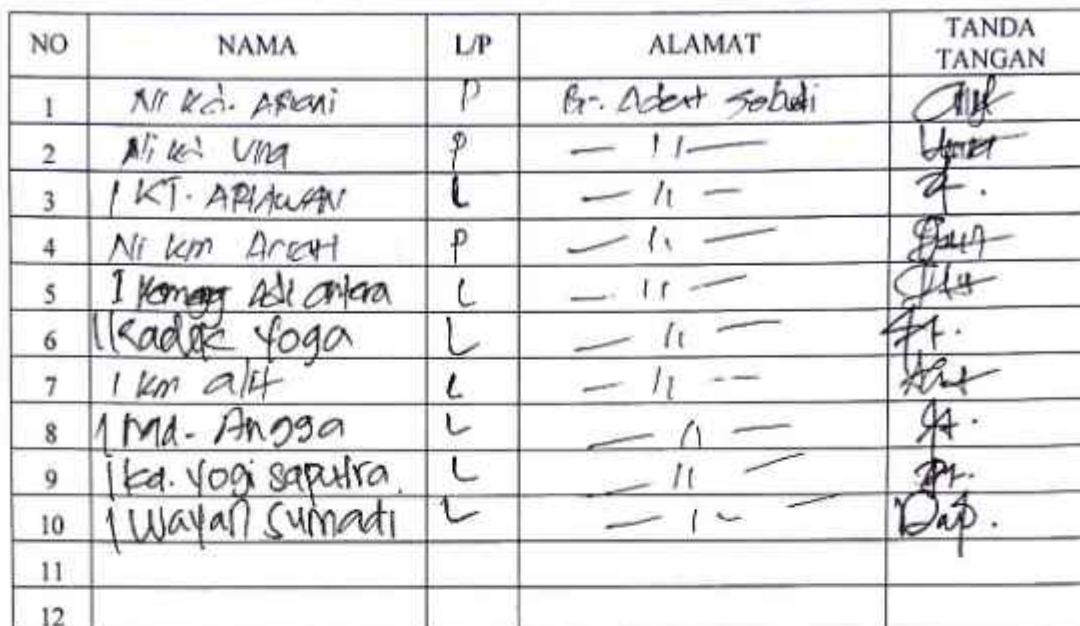 NO NAMA L/P ALAMAT TANDA TANGAN
1 Ni Kd. Ariani P Br. Adent Sobali
2 Ni Kd Vina P — 11 —
3 I KT. ARIAWAN L — 11 —
4 Ni Km P — 11 —
5 I Komang Adi antara L — 11 —
6 I Kadek Yoga L — 11 —
7 I Km alit L — 11 —
8 I Md. Angga L — 11 —
9 I Kd. Yogi saputra L — 11 —
10 I Wayan Sumadi L — 11 —
11
12